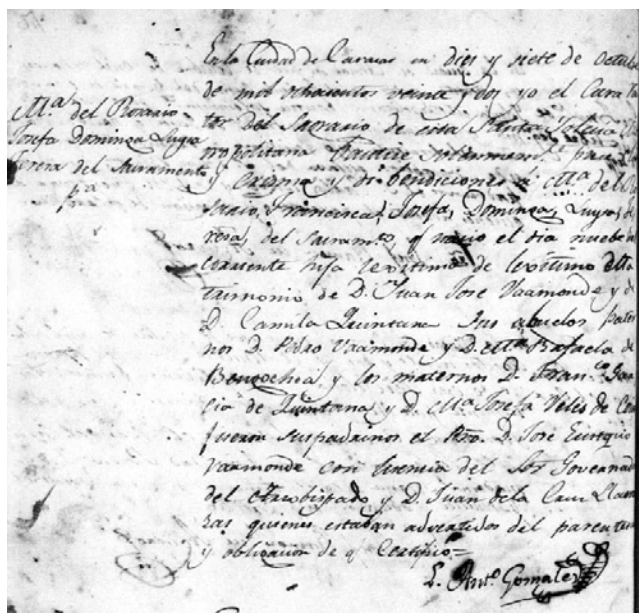 Mª del Rosario
Josefa Dominga Luysa
Teresa del Sacramento
pª
En la Ciudad de Caracas en dies y siete de Octub
de mil ochocientos veinte y dos yo el Cura
tor del Sagrario de esta Santa Iglecia
tropolitana Bautise solemnem.te puse
y Crisma y di bendiciones á Mª del
sario, Francisca, Josefa, Dominga, Luysa,
resa, del Sacram.to, q nació el dia nuebe
corriente hija lexitima de lexitimo Ma
trimonio de D. Juan José Vaamonde y d
D. Camila Quintana. Sus abuelos pater
nos D. Pedro Vaamonde y D. Mª Rafaela de
Bengochea, y los maternos D. Fran.co Gar
cia de Quintana, y D. Mª Josefa Veles de
fueron sus padrinos el Pbro. D. José Eustaquio
Vaamonde con licencia del Sor Governad
del Arzobispado y D. Juan de la Cruz Llam
zas quienes estaban advertidos del parentesc
y obligacion de q Certifico=
Anto. Gonzalez